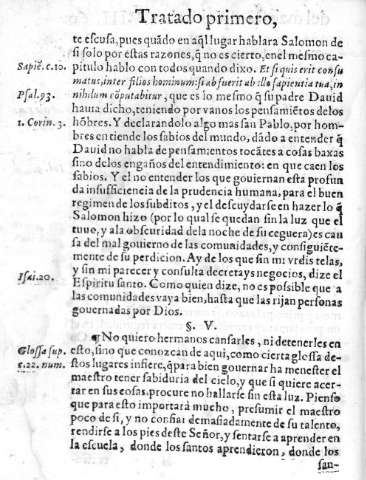 Tratado primero,
te escusa, pues quãdo en aq̃l lugar hablara Salomon de
si solo por estas razones, q̃ no es cierto, enel mesmo ca-
Sapiẽ. c. 10. pitulo hablo con todos quando dixo. Et si quis erit consu
matus, inter filios hominum: si ab fuerit ab illo sapientia tua, in
Psal. 93. nihilum cõputabitur, que es lo mesmo q̃ su padre Dauid
hauia dicho, teniendo por vanos los pensamiẽtos delos
1. Corin. 3. hõbres. Y declarandolo algo mas san Pablo, por hom-
bres entiende los sabios del mundo, dãdo a entender q̃
Dauid no habla de pensamiẽtos tocãtes a cosas baxas
sino delos engaños del entendimiento: en que caen los
sabios. Y el no entender los que gouiernan esta profun
da insufficiencia de la prudencia humana, para el buen
regimen de los subditos, y el descuydarse en hazer lo q̃
Salomon hizo (por lo qual se quedan sin la luz que el
tuuo, y ala obscuridad dela noche de su ceguera) es cau
sa del mal gouierno de las comunidades, y consiguiẽte-
mente de su perdicion. Ay de los que sin mi vrdis telas,
y sin mi parecer y consulta decretays negocios, dize el
Isai. 20. Espiritu santo. Como quien dize, no es posible que a
las comunidades vaya bien, hasta que las rijan personas
gouernadas por Dios.
§. V.
¶ No quiero hermanos cansarles, ni detenerles en
Glossa sup. esto, sino que conozcan de aqui, como cierta glossa de-
c. 22. num. stos lugares infiere, q̃ para bien gouernar ha menester el
maestro tener sabiduria del cielo, y que si quiere acer-
tar en sus cosas, procure no hallarse sin esta luz. Pienso
que para esto importarà mucho, presumir el maestro
poco de si, y no confiar demasiadamente de su talento,
rendirse a los pies deste Señor, y sentarse a aprender en
la escuela, donde los santos aprendieron, donde los
san-